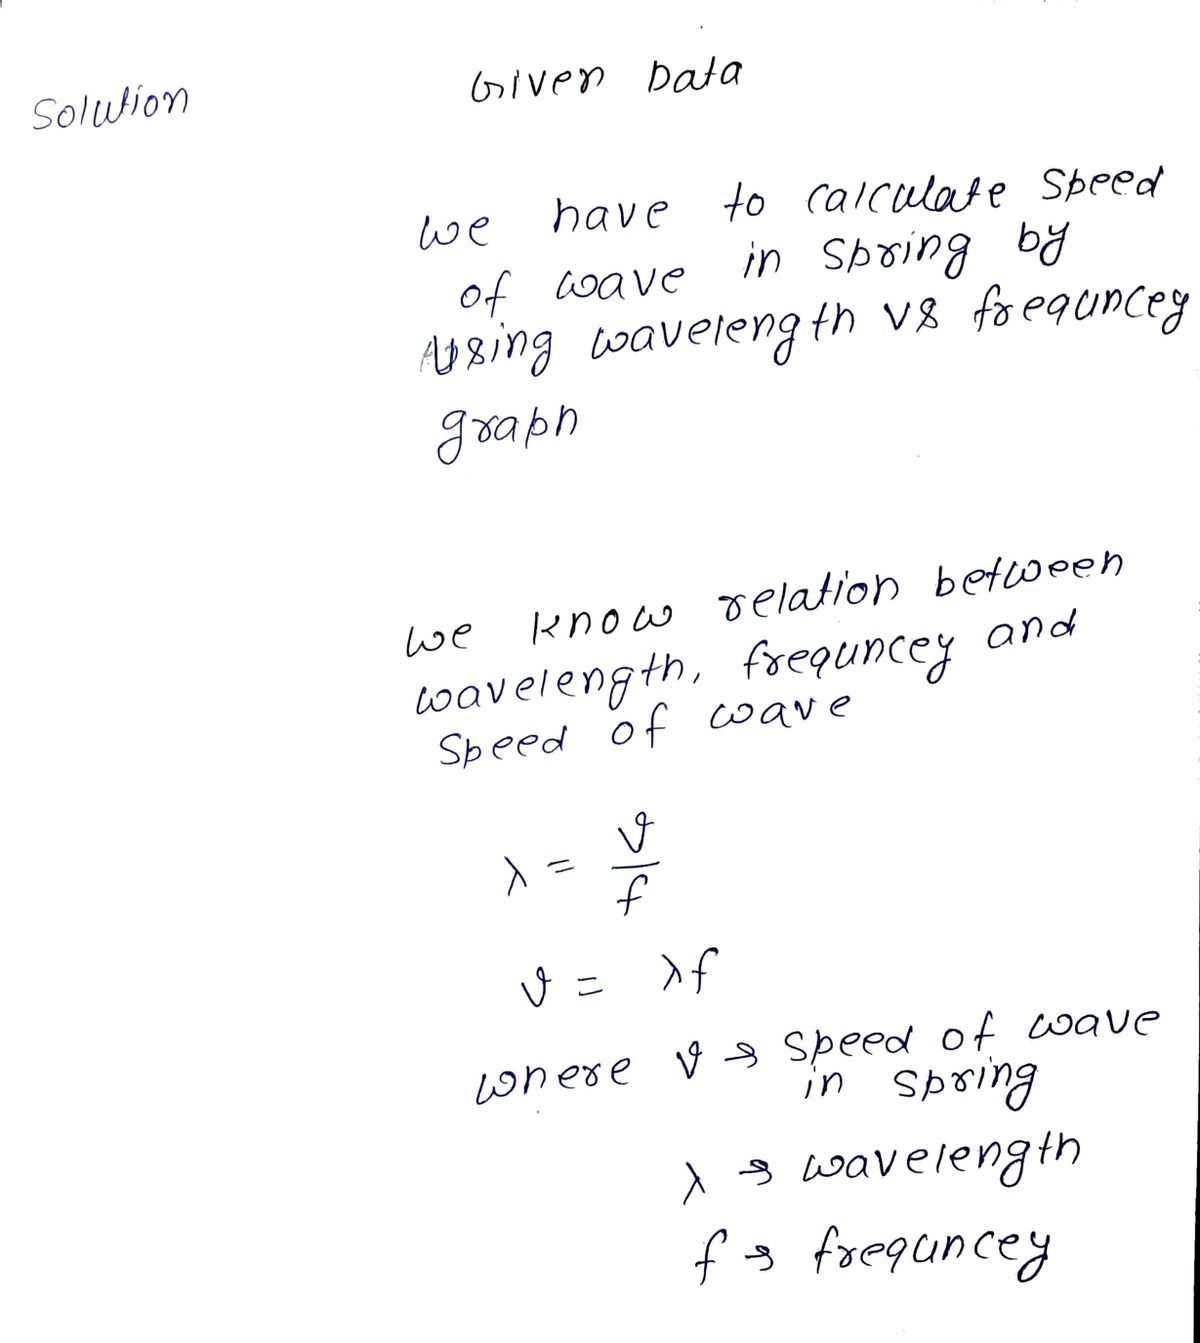 Solution
Given Data
we have to calculate Speed
of wave in Spring by
using wavelength vs frequncey
graph
we know relation between
wavelength, frequncey and
Speed of wave
λ = v/f
v = λf
where v → speed of wave
in spring
λ → wavelength
f → frequncey